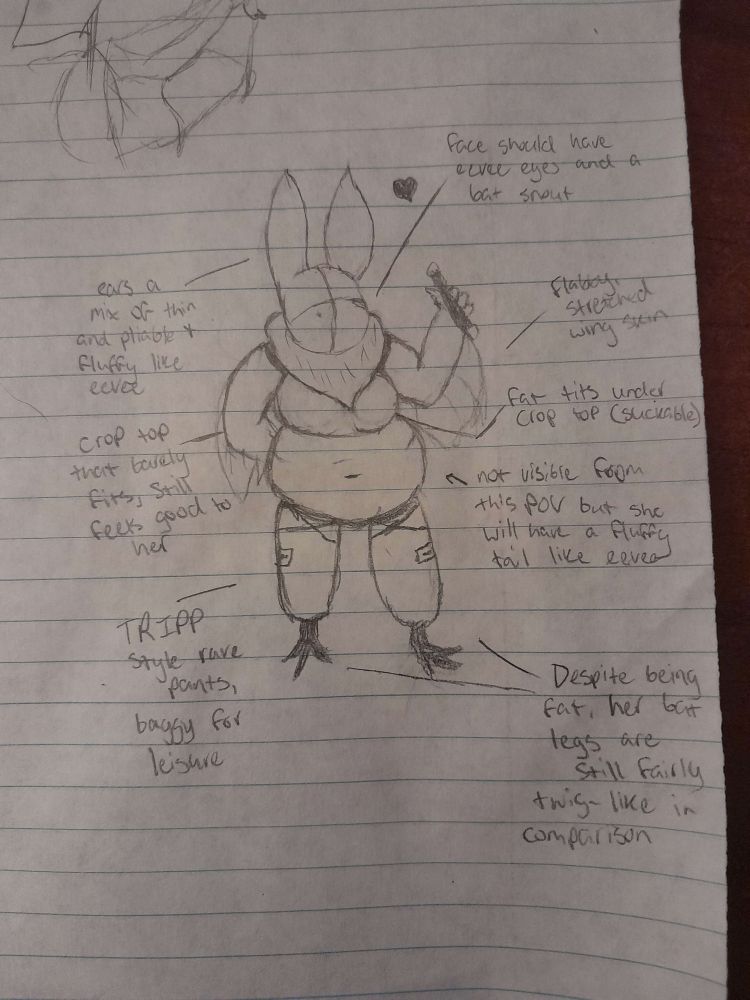 Face should have
eevee eyes and a
bat snout
ears a
mix of thin
and pliable +
fluffy like
eevee
flabby,
stretched
wing skin
fat tits under
crop top (suckable)
crop top
that barely
fits, still
feels good to
her
not visible from
this POV but she
will have a fluffy
tail like eevee
TRIPP
style rave
pants,
baggy for
leisure
Despite being
fat, her bat
legs are
still fairly
twig-like in
comparison